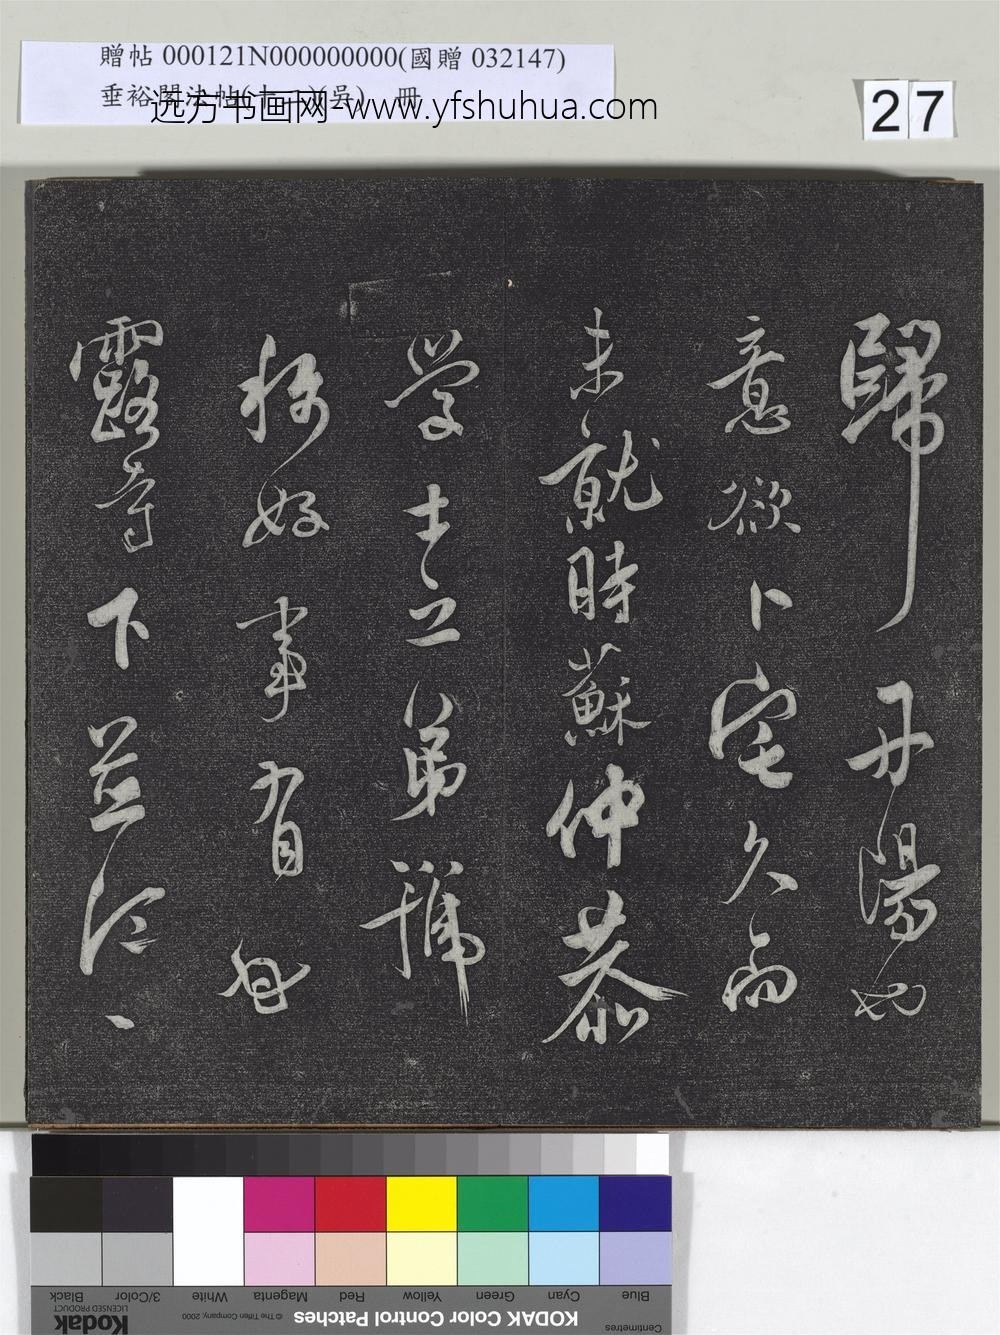 贈帖 000121N000000000(國贈 032147)
垂裕閣法帖(吳) 冊
远方书画网-www.yfshuhua.com
27
歸丹陽也
意欲卜宅久而
未就時蘇仲恭
學士之弟號
稱好事有甘
露寺下並江
Blue Cyan Green Yellow Red Magenta White 3/Color Black
Centimetres KODAK Color Control Patches © The Tiffen Company, 2000 Kodak
LICENSED PRODUCT